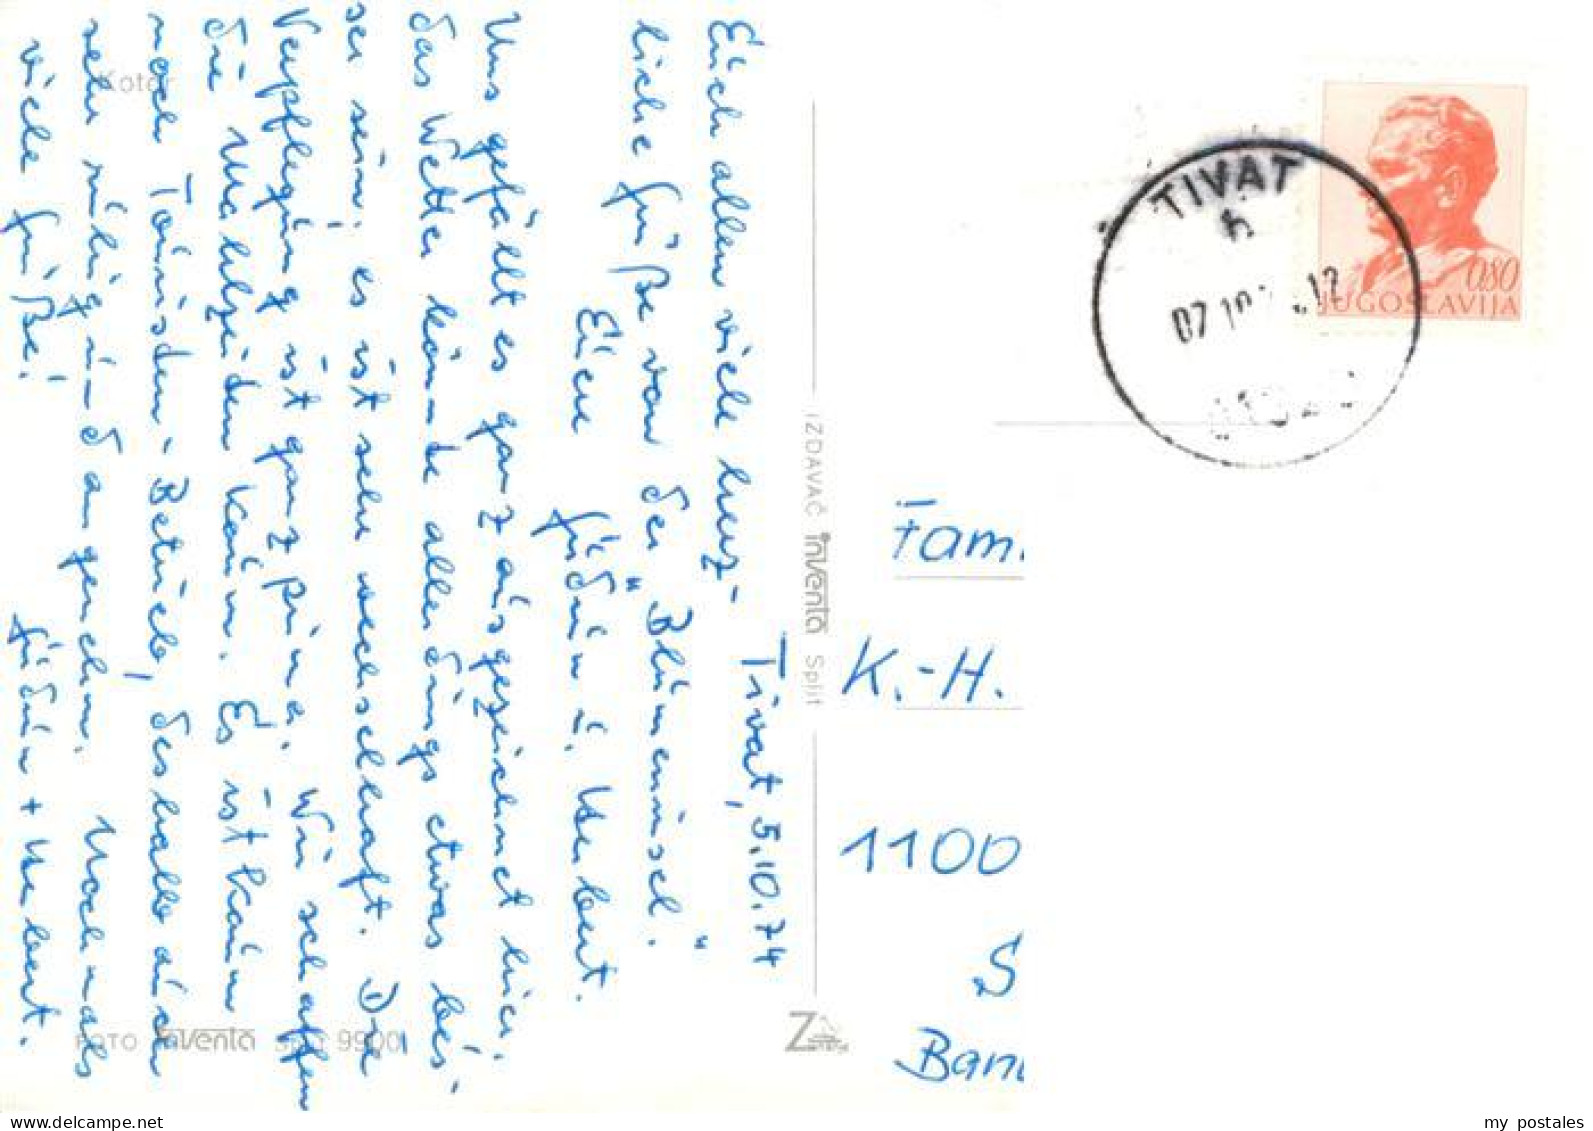 Tivat, 5.10.74
Euch allen viele herz-
liche Grüße von der "Blumeninsel."
Eure Gudrun u. Herbert.
Uns gefällt es ganz ausgezeichnet hier.
Das Wetter könnte allerdings etwas bes-
ser sein; es ist sehr wechselhaft. Die
Verpflegung ist ganz prima. Wir schaffen
die Mahlzeiten kaum. Es ist kaum
noch Touristen-Betrieb, deshalb auch
sehr ruhig und angenehm. Nochmals
viele Grüße! Gudrun + Herbert.
Kotor
FOTO inventa Split 9900
IZDAVAČ inventa Split
TIVAT
JUGOSLAVIJA
0,80
Fam.
K.-H.
1100
Z
my postales